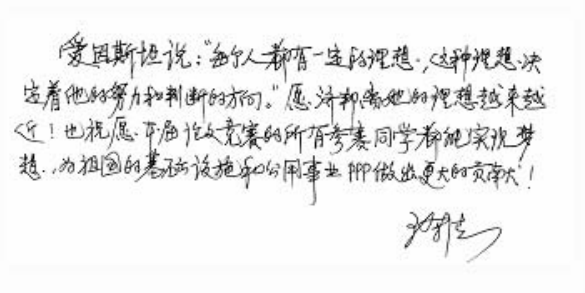 爱因斯坦说:“每个人都有一定的理想,这种理想决
定着他的努力和判断的方向。”愿济邦离她的理想越来越
近!也祝愿本届论文竞赛的所有参赛同学都能实现梦
想,为祖国的基础设施和公用事业PPP做出更大的贡献!